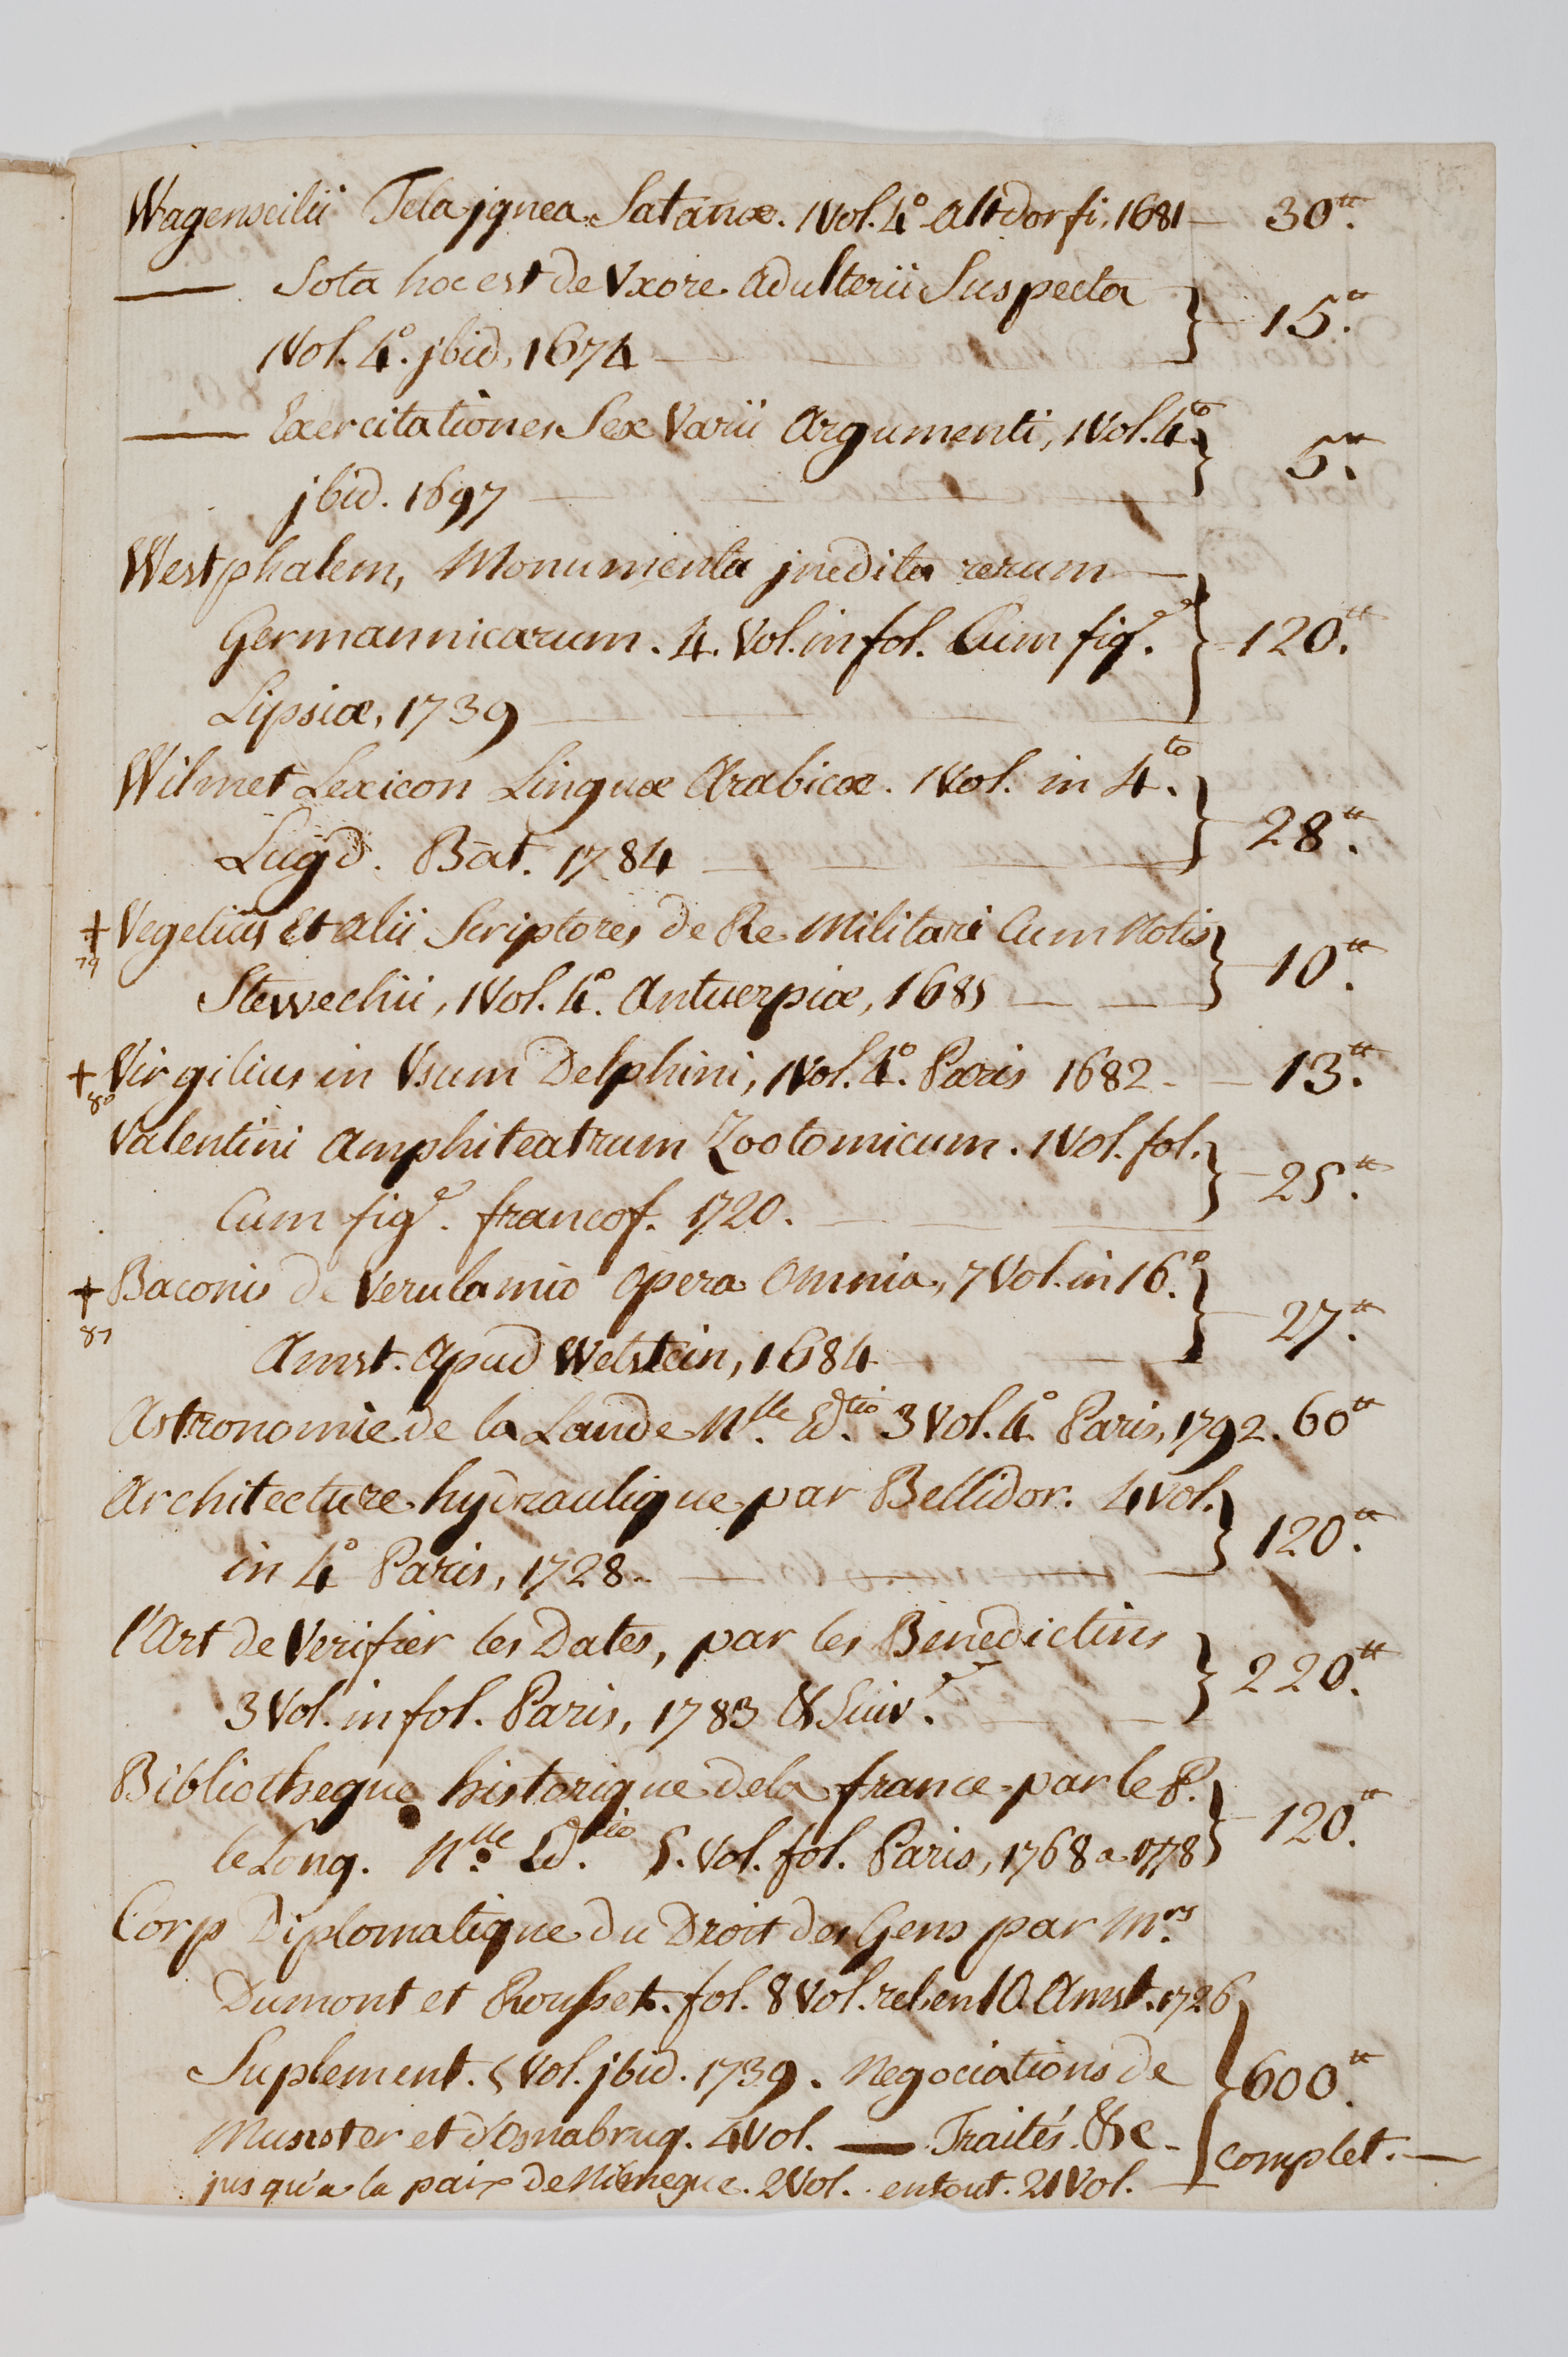 Wagenseilii Tela jgnea Satanæ. 1 Vol. 4° Altdorfi, 1681 — 30.tt
— Sota hoc est de Vxore adulterii Suspecta
1 Vol. 4°. jbid, 1674 — 15.tt
— Exercitationes Sex Varii Argumenti, 1 Vol. 4to
jbid. 1697 — 5.tt
Westphalem, Monumenta jnedita rerum
Germannicarum. 4. Vol. in fol. Cum fig.e — 120.tt
Lipsiæ, 1739
Wilmet Lexicon Linguæ Arabicæ. 1 Vol. in 4.to
Lugd. Bat. 1784 — 28.tt
+ Vegetius Et alii Scriptores de Re Militari Cum Notis
79 Stewechii, 1 Vol. 4°. Antuerpiæ, 1685 — 10.tt
+ Virgilius in Vsum Delphini, 1 Vol. 4°. Paris 1682 — 13.tt
80
Valentini Amphiteatrum Zootomicum. 1 Vol. fol.
Cum fig.e francof. 1720. — 25.tt
+ Baconis de Verulamio opera Omnia, 7 Vol. in 16.°
81 Amst. apud Wetstein, 1684 — 27.tt
Astronomie de la Lande N.lle Ed.tio 3 Vol. 4° Paris, 1792. 60tt
Architecture hydraulique par Bellidor. 4 Vol.
in 4° Paris, 1728. — 120.tt
l'Art de Verifier les Dates, par les Benedictins
3 Vol. in fol. Paris, 1783 & Suiv. — 220.tt
Bibliotheque historique dela france par le P.
le Long. N.lle Ed.tio 5. Vol. fol. Paris, 1768 a 1778 — 120.tt
Corp Diplomatique du Droit des Gens par M.rs
Dumont et Rousset. fol. 8 Vol. rel. en 10. Amst. 1726
Suplement. 5 Vol. jbid. 1739. Negociations de 600.tt
Munster et d'Osnabrug. 4 Vol. — Traités &c - complet. —
jusqu'a la paix de Nimegue. 2 Vol. . entout. 21 Vol.